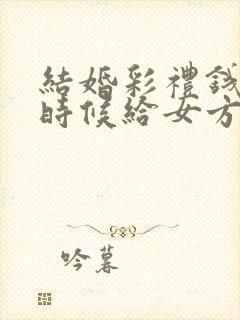 結婚彩禮錢
時候給女方
吟暮